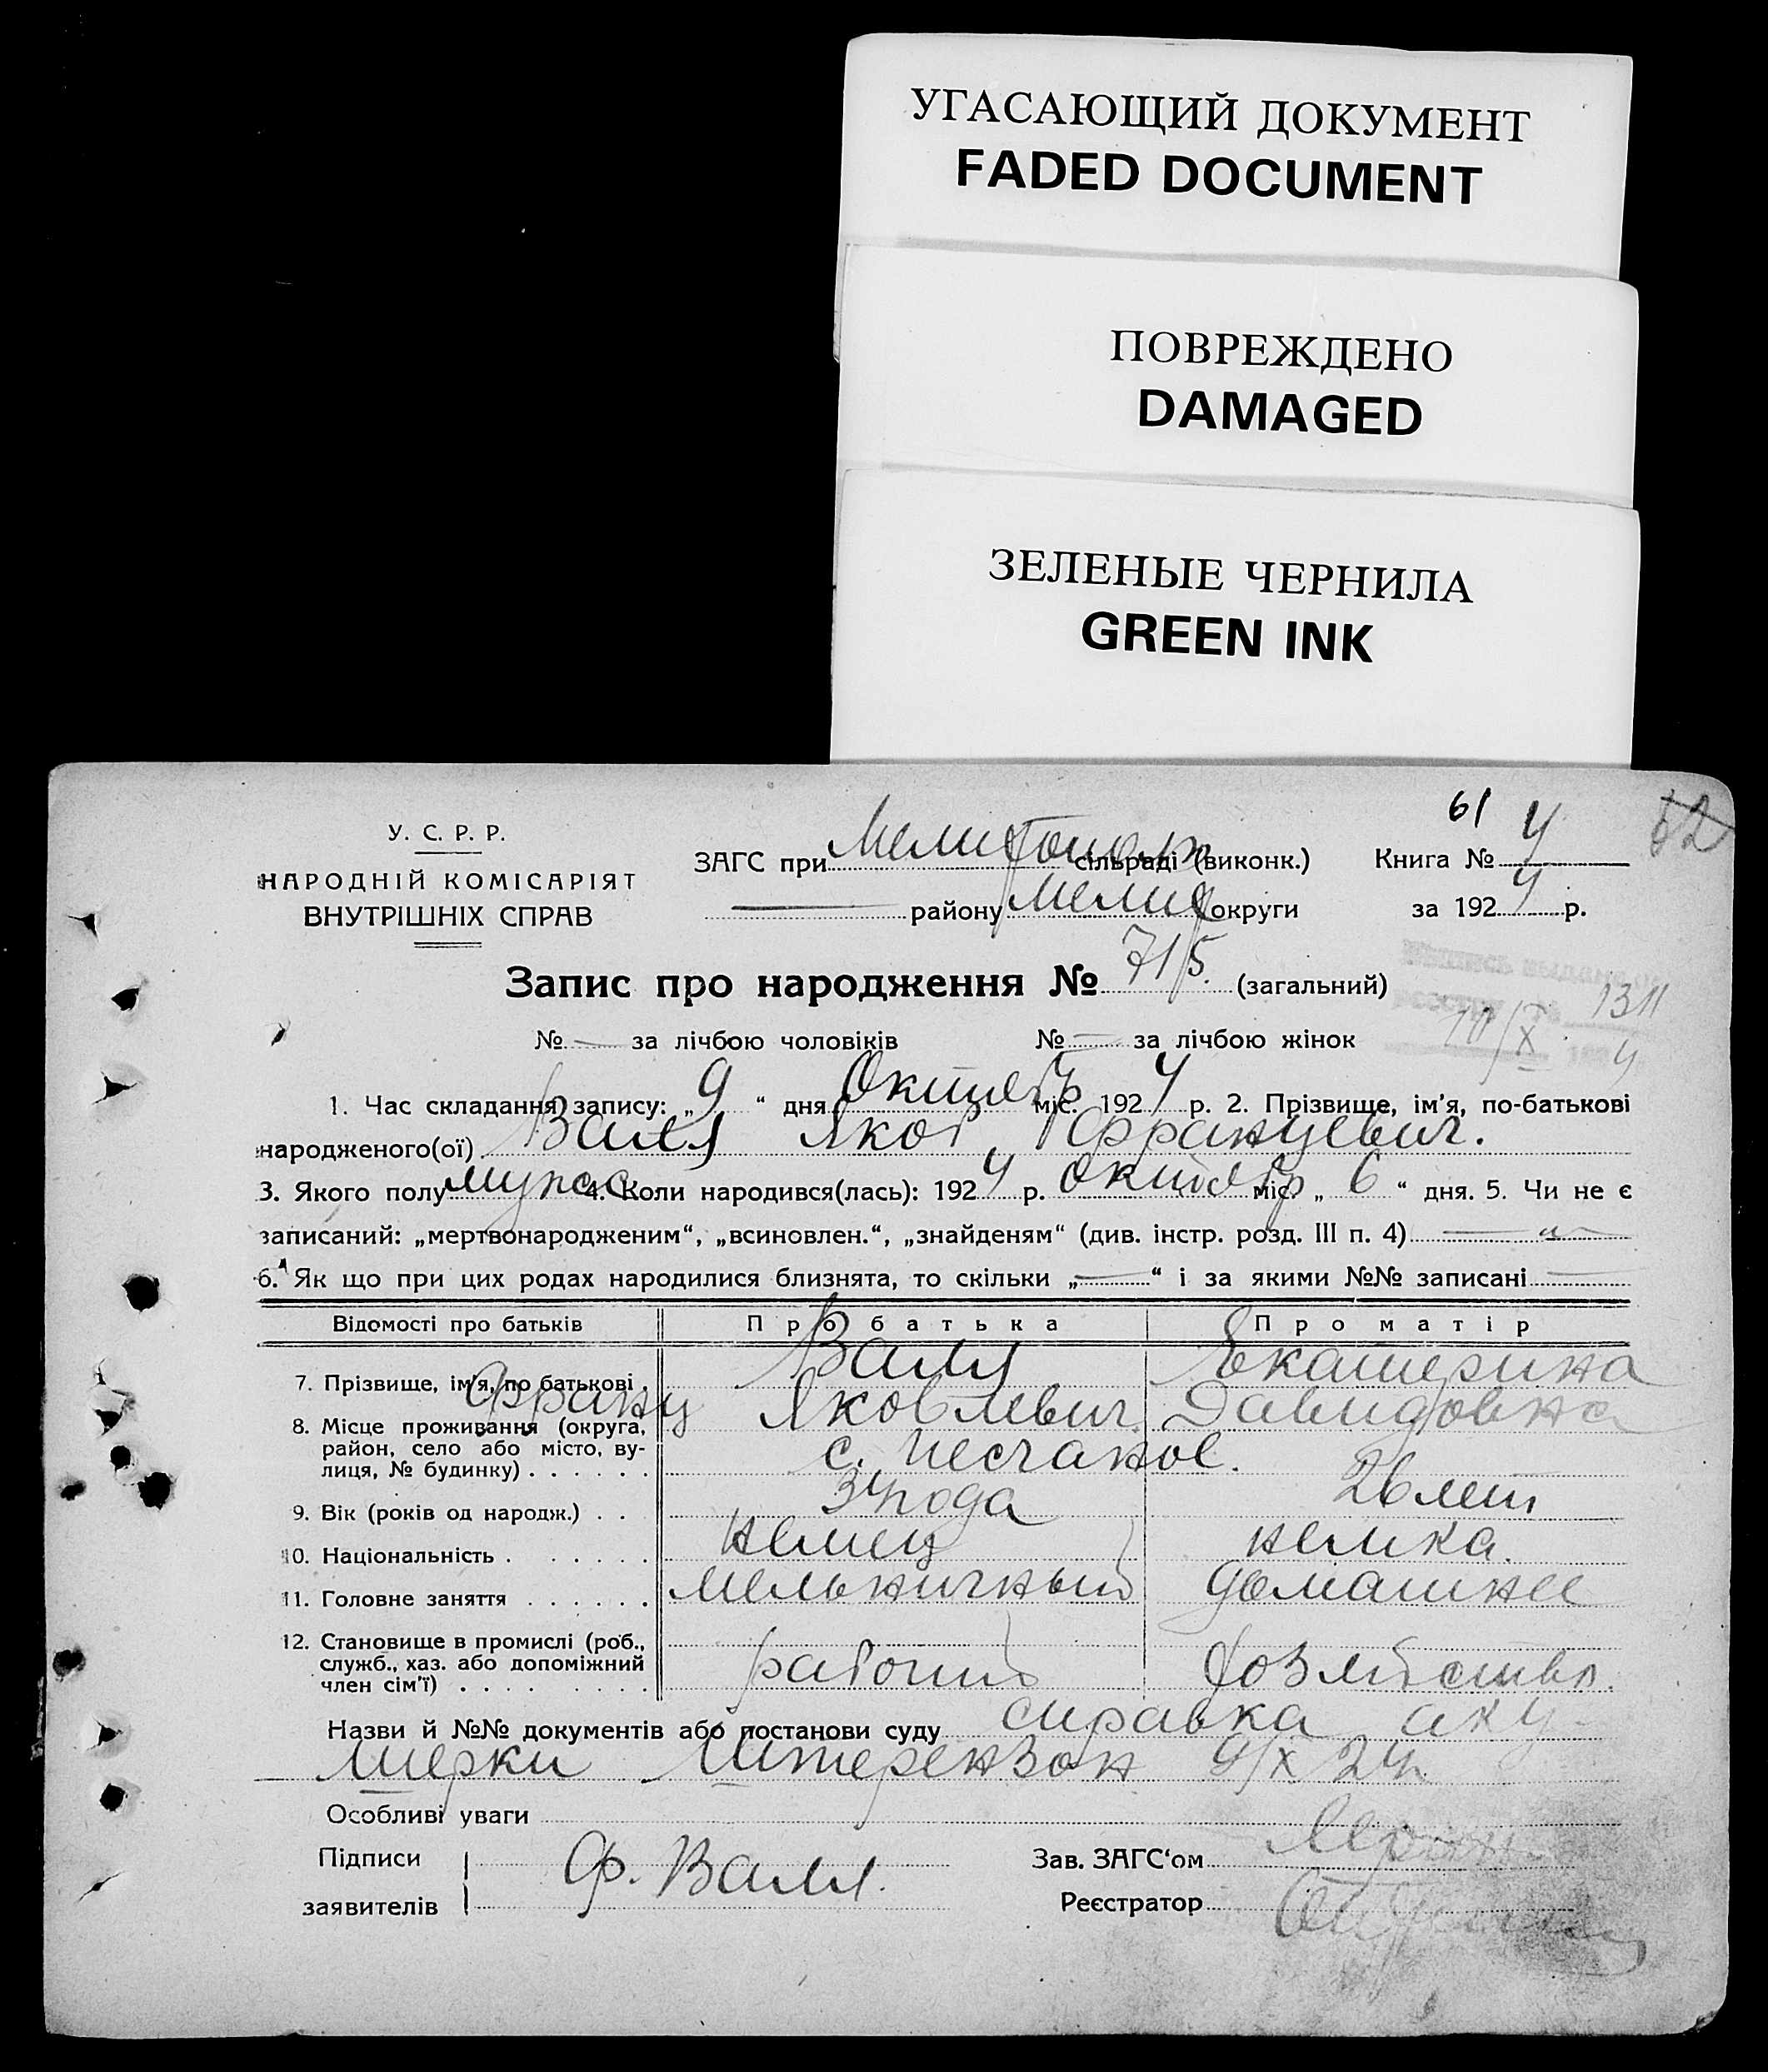 УГАСАЮЩИЙ ДОКУМЕНТ
FADED DOCUMENT
ПОВРЕЖДЕНО
DAMAGED
ЗЕЛЕНЫЕ ЧЕРНИЛА
GREEN INK
61
62
У. С. Р. Р.
НАРОДНІЙ КОМІСАРІЯТ
ВНУТРІШНІХ СПРАВ
ЗАГС при Мелитопол сільраді (виконк.) Книга № 4
— району Мелит округи за 1924 р.
Запис про народження № 715. (загальний)
1311
10/X 4
№ — за лічбою чоловіків № — за лічбою жінок
1. Час складання запису: „9“ дня Октябр міс. 1924 р. 2. Прізвище, ім'я, по-батькові
народженого(ої) Валл Яков Францевич.
3. Якого полу мужс 4. Коли народився(лась): 1924 р. Октябр міс. „6“ дня. 5. Чи не є
записаний: „мертвонародженим“, „всиновлен.“, „знайденям“ (див. інстр. розд. III п. 4) — „ —
6. Як що при цих родах народилися близнята, то скільки „—“ і за якими №№ записані —
Відомості про батьків Про батька Про матір
7. Прізвище, ім'я, по батькові. Валл Екатерина
Франц Яковлевич Давидовна
8. Місце проживання (округа, район, село або місто, вулиця, № будинку) . . . . . . с. Песчаное.
9. Вік (років од народж.) . . 34 года 26 лет
10. Національність . . . . . . немец немка.
11. Головне заняття . . . . . . мельничный домашнее
12. Становище в промислі (роб., служб., хаз. або допоміжний член сім'ї) . . . . . . . . рабочий хозяйство.
Назви й №№ документів або постанови суду справка аку-
шерки Штерензон 9/X 24г.
Особливі уваги
Підписи Ф. Валл. Зав. ЗАГС'ом
заявителів Реєстратор